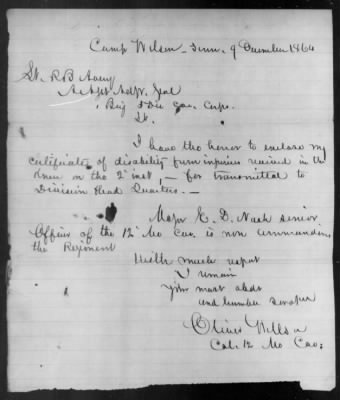 Camp Wilson - Tenn. 9 December 1864
Lt. R B Avery
Actg Asst Adjt Genl
1 Brig 5 Div Cav. Corps.
Lt.
I have the honor to enclose my
certificate of disability from injuries received in the
Knee on the 2nd inst, - for transmittal to
Division Head Quarters. -
Major E. D. Nash senior
Officer of the 12th Mo Cav. is now commanding
the Regiment
With much respect
I remain
your most obdt
and humble servant
Oliver Wells
Col. 12 Mo Cav.